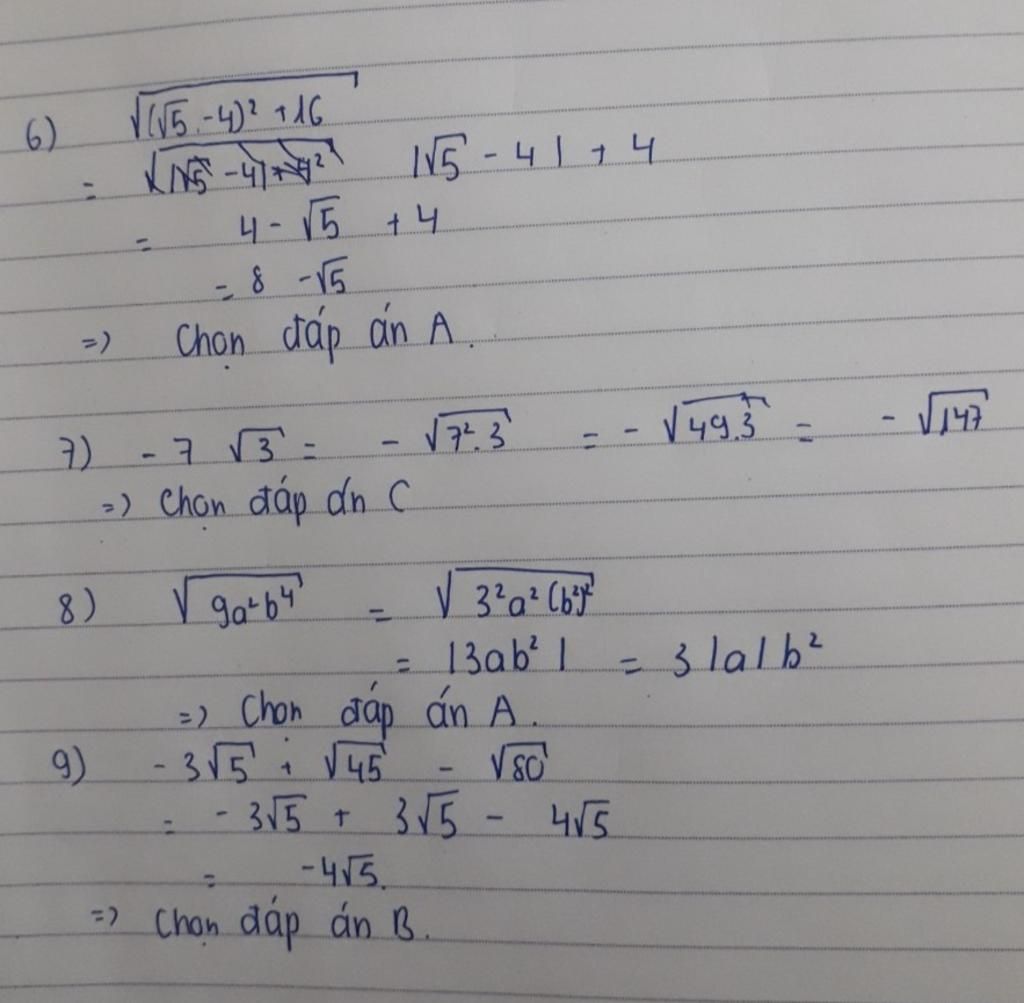 6) √((√5 - 4)² + 16
= |√5 - 4| + 4
= 4 - √5 + 4
= 8 - √5
=> Chọn đáp án A.
7) - 7 √3 = - √7².3 = - √49.3 = - √147
=> Chọn đáp án C
8) √9a²b⁴ = √3²a²(b²)²
= |3ab²| = 3|a|b²
=> Chọn đáp án A.
9) - 3√5 + √45 - √80
= - 3√5 + 3√5 - 4√5
= -4√5.
=> Chọn đáp án B.